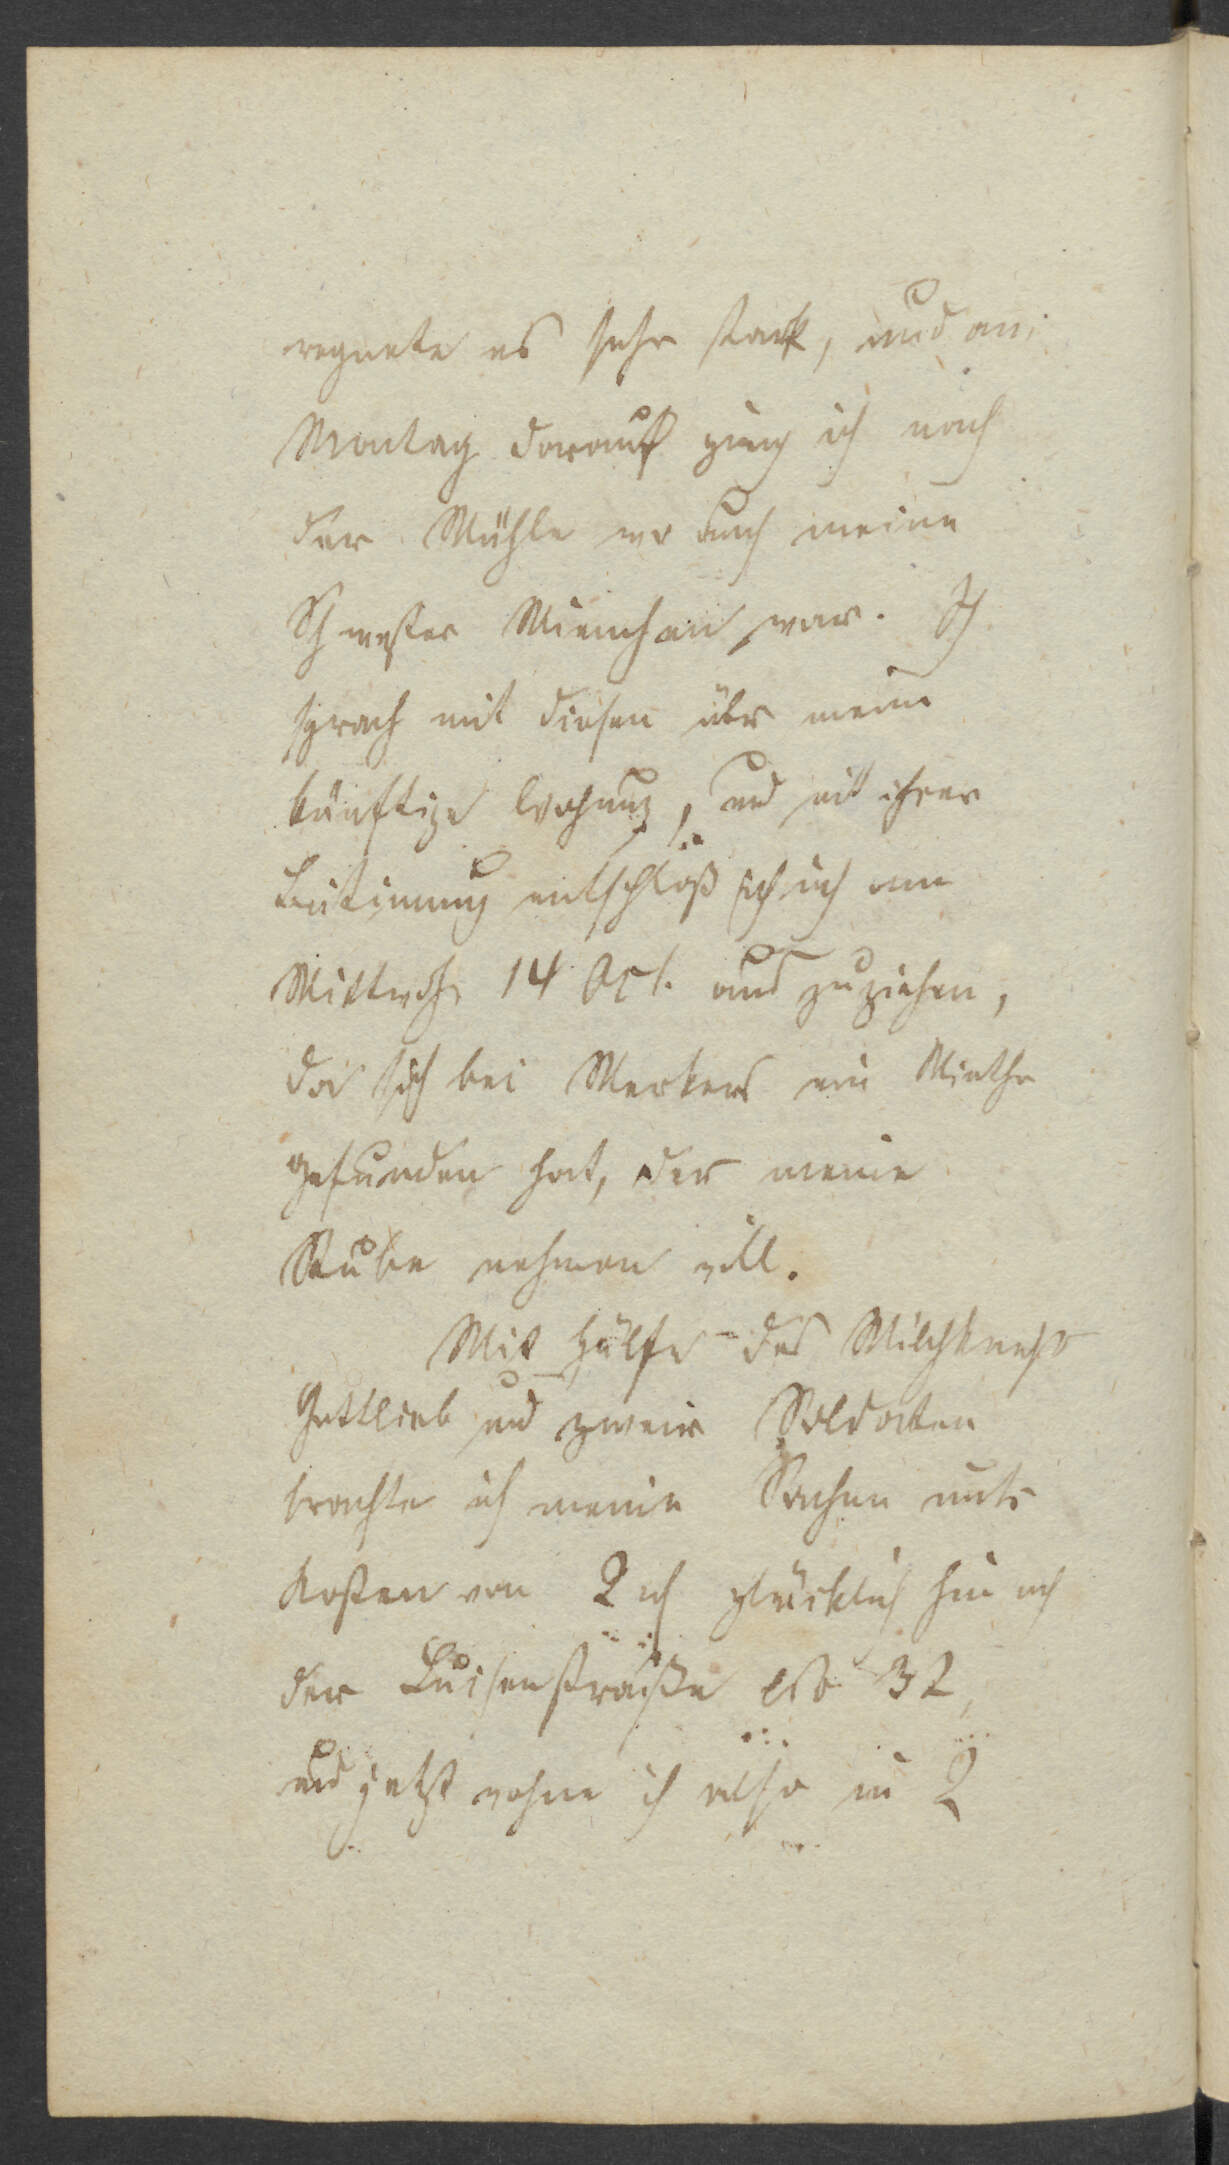 regnete es sehr stark, und am
Montag darauf ging ich nach
der Mühle wo auch meine
Schwester Mienchen war. Ich
sprach mit diesen über meine
künftige Wohnung, und mit ihrer
entschloß ich am
Mittwoch 14 Oct. aus zuziehen,
da sich bei Merkers ein Miether
gefunden hat, der meine
Stube nehmen will.
Mit Hülfe des Milchknechts
Gottlieb und zweier Soldaten
brachte ich meine Sachen mit
Kosten von 2 glücklich hin nach
der Luisenstraße No 32,
und jetzt wohne ich also in 2